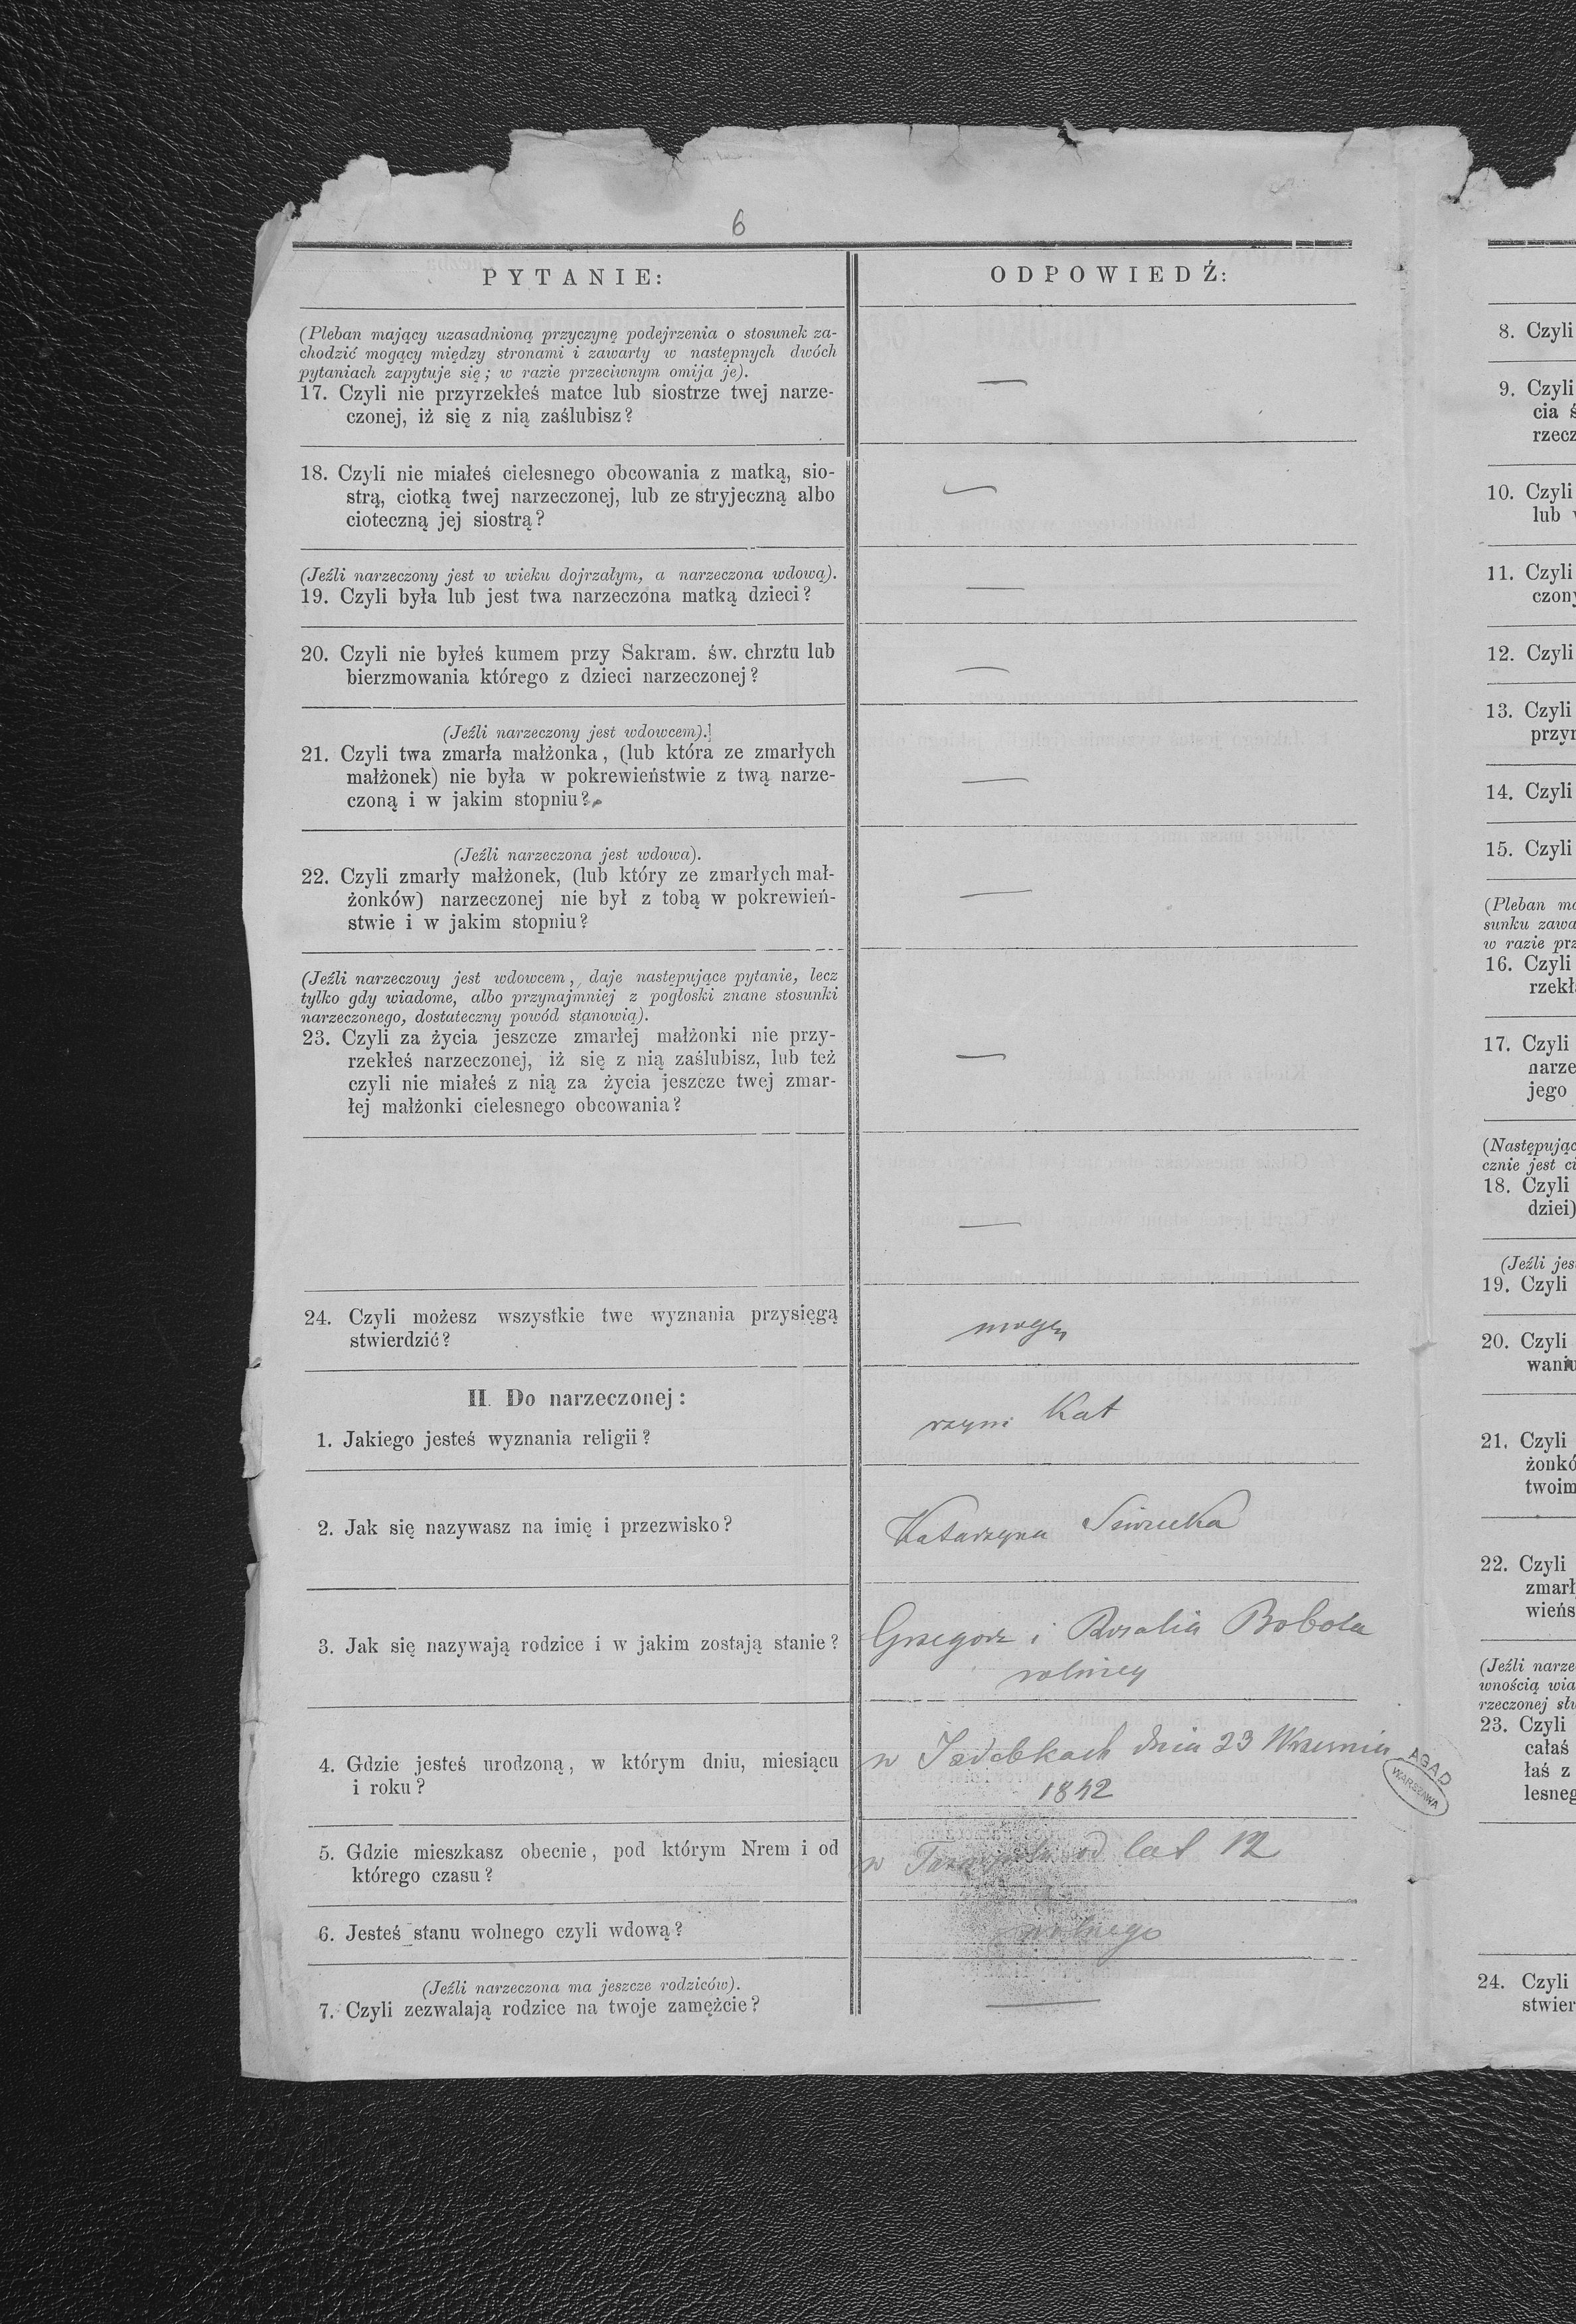 6
PYTANIE:
ODPOWIEDŹ:
(Pleban mający uzasadnioną przyczynę podejrzenia o stosunek za-
chodzić mogący między stronami i zawarty w następnych dwóch
pytaniach zapytuje się; w razie przeciwnym omija je).
17. Czyli nie przyrzekłeś matce lub siostrze twej narze-
czonej, iż się z nią zaślubisz?
—
18. Czyli nie miałeś cielesnego obcowania z matką, sio-
strą, ciotką twej narzeczonej, lub ze stryjeczną albo
cioteczną jej siostrą?
—
(Jeźli narzeczony jest w wieku dojrzałym, a narzeczona wdową).
19. Czyli była lub jest twa narzeczona matką dzieci?
—
20. Czyli nie byłeś kumem przy Sakram. św. chrztu lub
bierzmowania którego z dzieci narzeczonej?
—
(Jeźli narzeczony jest wdowcem).
21. Czyli twa zmarła małżonka, (lub która ze zmarłych
małżonek) nie była w pokrewieństwie z twą narze-
czoną i w jakim stopniu?
—
(Jeźli narzeczona jest wdowa).
22. Czyli zmarły małżonek, (lub który ze zmarłych mał-
żonków) narzeczonej nie był z tobą w pokrewień-
stwie i w jakim stopniu?
—
(Jeźli narzeczony jest wdowcem, daje następujące pytanie, lecz
tylko gdy wiadome, albo przynajmniej z pogłoski znane stosunki
narzeczonego, dostateczny powód stanowią).
23. Czyli za życia jeszcze zmarłej małżonki nie przy-
rzekłeś narzeczonej, iż się z nią zaślubisz, lub też
czyli nie miałeś z nią za życia jeszcze twej zmar-
łej małżonki cielesnego obcowania?
—
—
24. Czyli możesz wszystkie twe wyznania przysięgą
stwierdzić?
mogę
II. Do narzeczonej:
1. Jakiego jesteś wyznania religii?
rzym Kat
2. Jak się nazywasz na imię i przezwisko?
Katarzyna
3. Jak się nazywają rodzice i w jakim zostają stanie?
Grzegorz i Rozalia Bobola
rolnicy
4. Gdzie jesteś urodzoną, w którym dniu, miesiącu
i roku?
w dnia 23 Września
1842
AGAD
WARSZAWA
5. Gdzie mieszkasz obecnie, pod którym Nrem i od
którego czasu?
w od lat 12
6. Jesteś stanu wolnego czyli wdową?
wolnego
(Jeźli narzeczona ma jeszcze rodziców).
7. Czyli zezwalają rodzice na twoje zamężcie?
—
8. Czyli
9. Czyli
cia
rzecz
10. Czyli
lub
11. Czyli
czony
12. Czyli
13. Czyli
przyr
14. Czyli
15. Czyli
(Pleban
sunku zawa
w razie prz
16. Czyli
rzekł
17. Czyli
narze
jego
(Następując
cznie jest ci
18. Czyli
dziei)
(Jeźli jes
19. Czyli
20. Czyli
waniu
21. Czyli
żonkó
twoim
22. Czyli
zmarł
wieńs
(Jeźli narze
wnością wia
rzeczonej słu
23. Czyli
całaś
łaś z
lesneg
24. Czyli
stwier